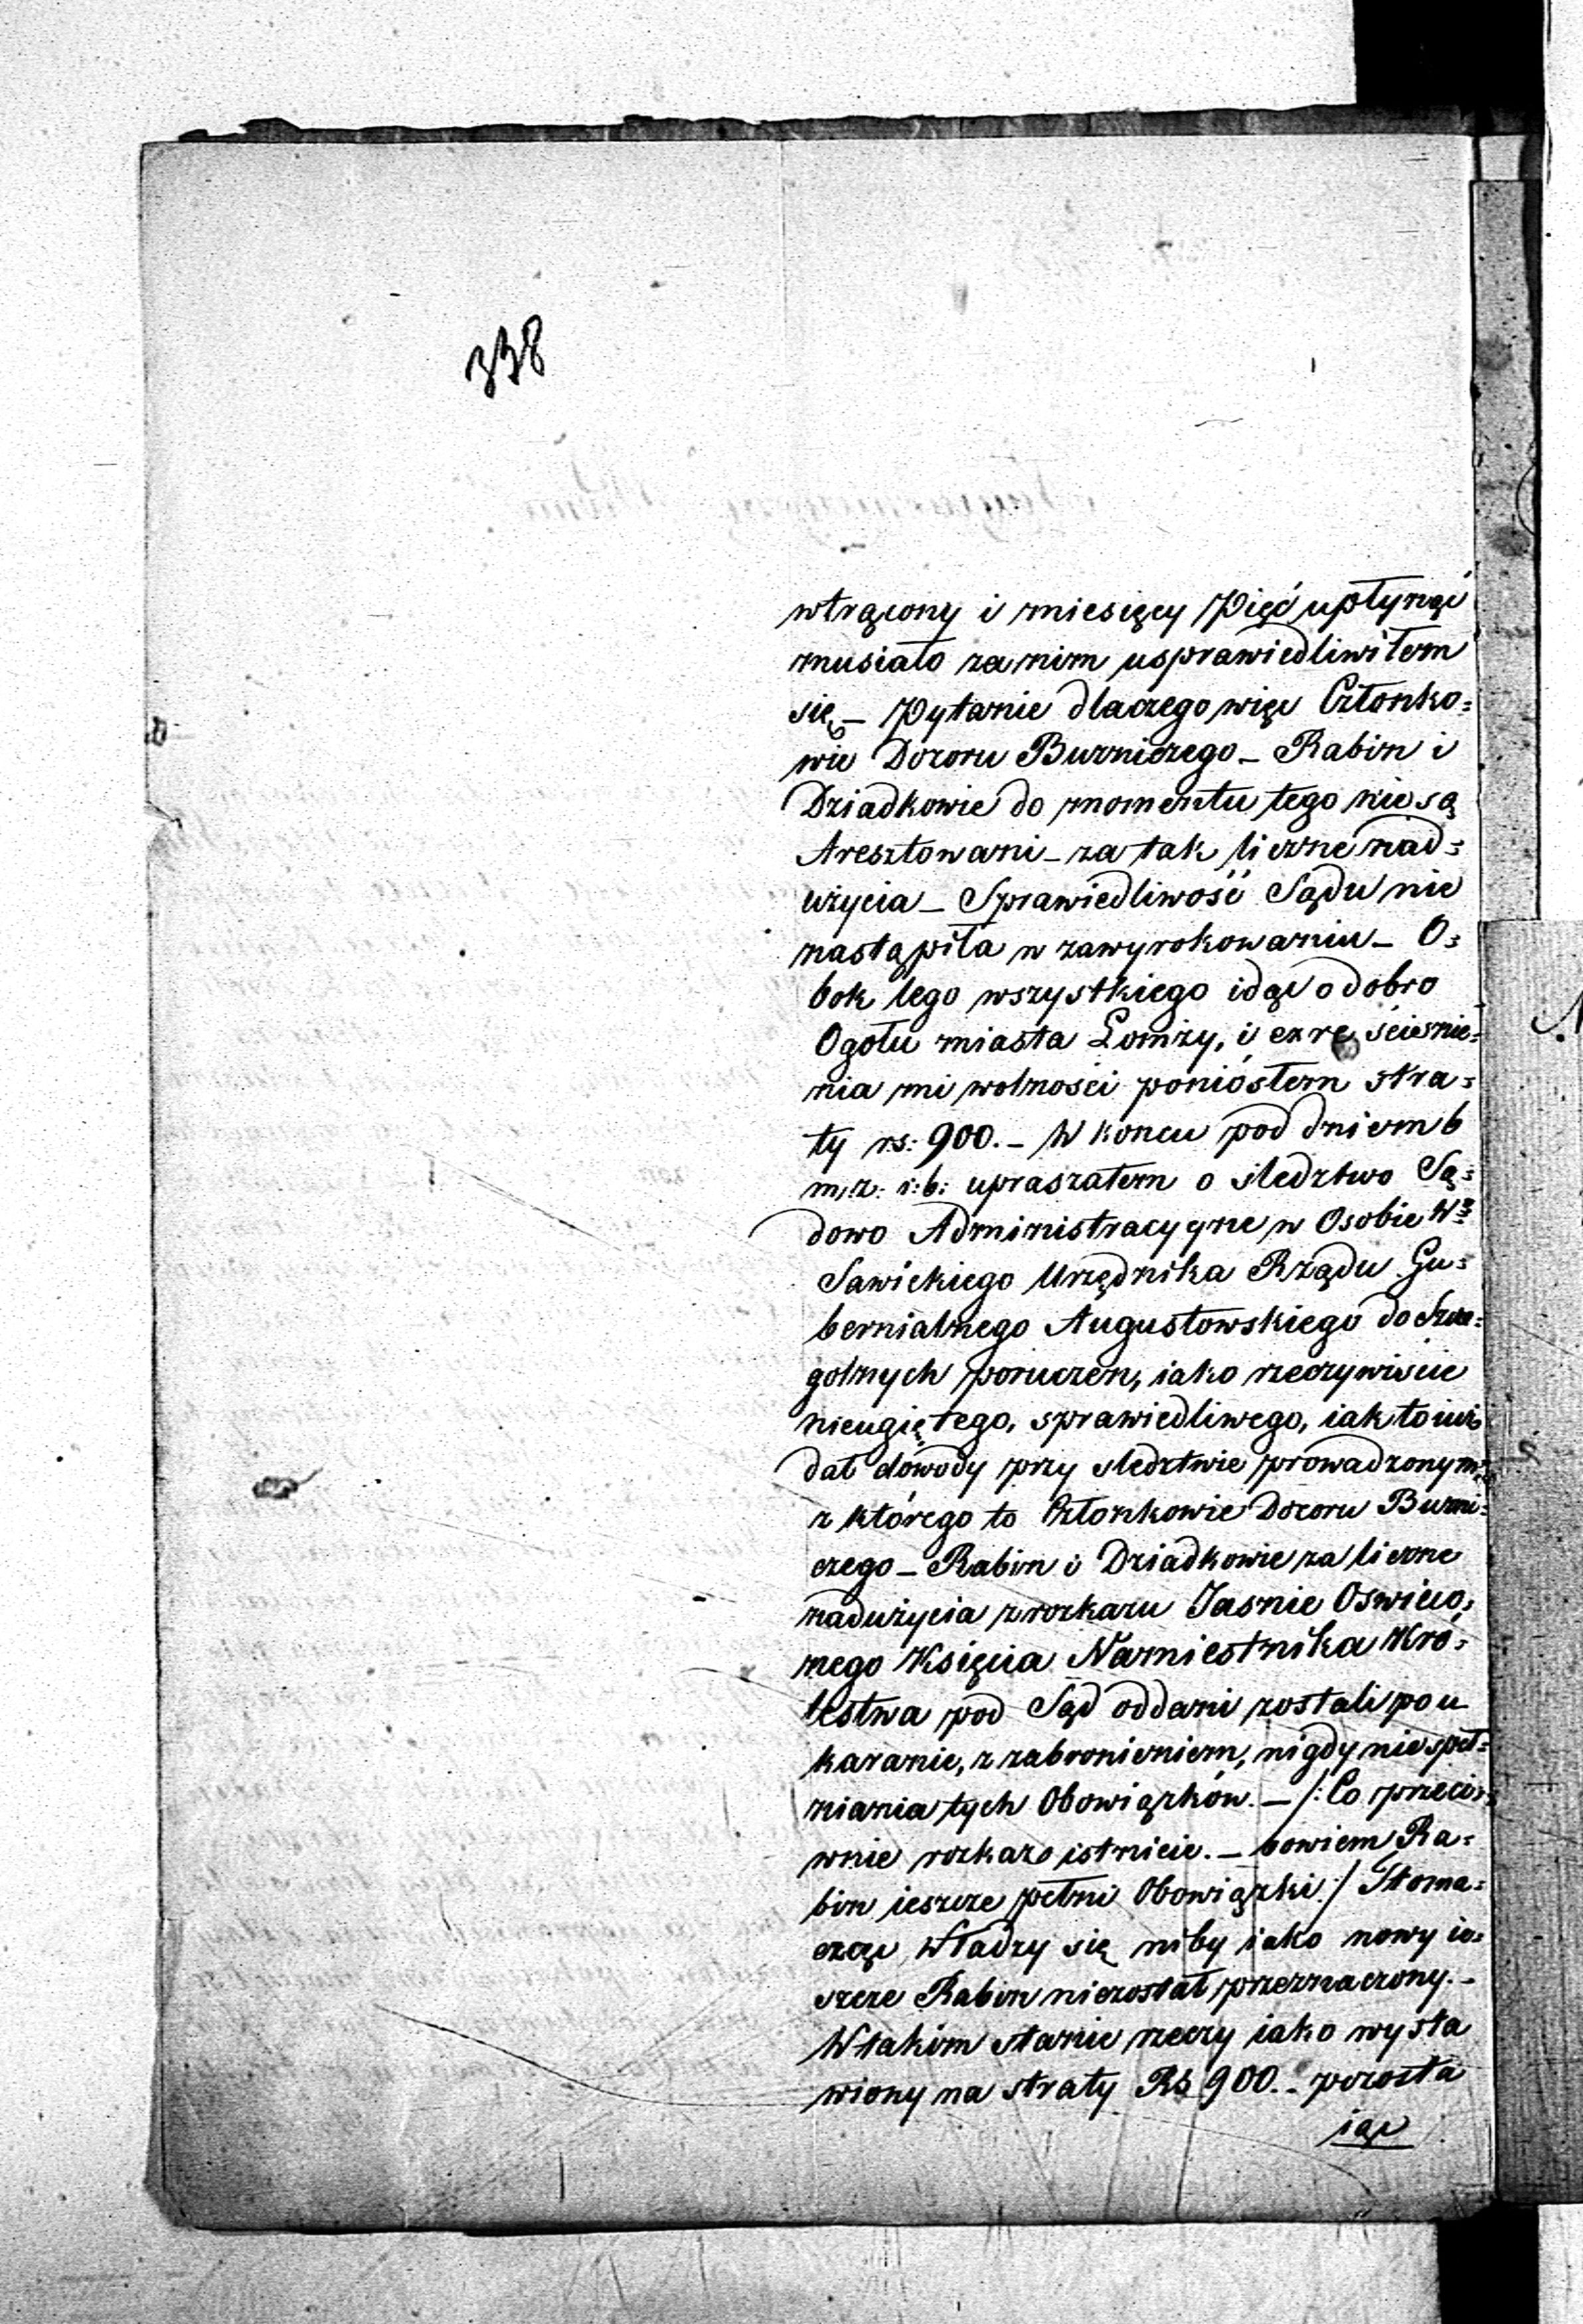 338
wtrącony i miesięcy Pięć upłynąć
musiało zanim usprawiedliwiłem
się – Pytanie dlaczego więc Członko=
wie Dozoru Buzniczego – Rabin i
Dziadkowie do momentu tego nie są
Aresztowani – za tak liczne nad=
użycia – Sprawiedliwość Sądu nie
nastąpiła w zawyrokowaniu – O=
bok tego wszystkiego idąc o dobro
Ogołu miasta Łomży, i ex re ścieśnie=
nia mi wolności poniósłem stra=
ty rs: 900. – W koncu pod dniem 6
m,z: r: b: upraszałem o sledztwo Są=
dowo Administracyyne w Osobie W°
Sawickiego Urzędnika Rządu Gu=
bernialnego Augustowskiego do Szcze=
golnych poruczen, iako rzeczywiscie
nieugiętego, sprawiedliwego, iak to iuż
dał dowody przy sledztwie prowadzonym,
z którego to Członkowie Dozoru Buzni=
czego – Rabin i Dziadkowie za liczne
nadużycia z rozkazu Jasnie Oswieco=
nego Księcia Namiestnika Kró=
lestwa pod Sąd oddani zostali po u
karanie, z zabronieniem, nigdy nie speł=
niania tych Obowiązków. – /: Co przeci=
wnie rozkazo istnieie. – bowiem Ra=
bin ieszcze pełni Obowiązki :/ Tłoma=
cząc Władzy się niby iako nowy ie=
szcze Rabin niezostał przeznaczony. –
W takim stanie rzeczy iako wysta
wiony na straty Rs 900. – pozosta
iąc